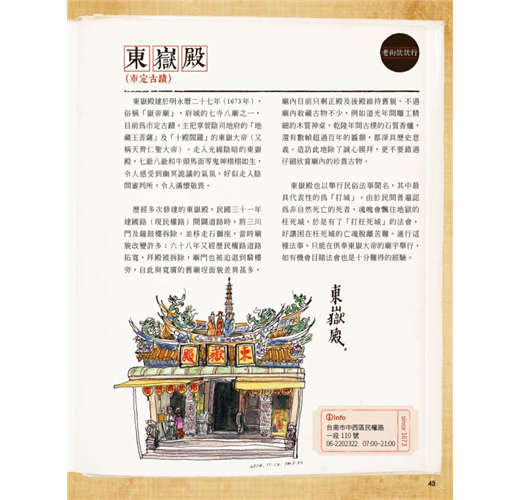 東嶽殿
(市定古蹟)
老街散散行
東嶽殿建於明永曆二十七年(1673年),
俗稱「嶽帝廟」,府城的七寺八廟之一,
目前為市定古蹟,主祀掌管陰司地府的「地
藏王菩薩」及「十殿閻羅」的東嶽大帝(又
稱天齊仁聖大帝)。走入光線陰暗的東嶽
殿,七爺八爺和牛頭馬面等鬼神栩栩如生,
令人感受到幽冥詭譎的氣氛,好似走入陰
間審判所,令人滿懷敬畏。
歷經多次修建的東嶽殿,民國三十一年
建國路(現民權路)開闢道路時,將三川
門及鐘鼓樓拆除,並移走石獅座,當時廟
貌改變許多;六十八年又經歷民權路道路
拓寬,拜殿被拆除,廟門也被迫退到騎樓
旁,自此與寬廣的舊廟埕面貌差異甚多,
廟內目前只剩正殿及後殿維持舊貌。不過
廟內收藏古物不少,例如道光年間雕工精
細的木質神桌,乾隆年間古樸的石質香爐,
還有數幀超過百年的匾額,都深具歷史意
義。造訪此地除了誠心膜拜,更不要錯過
仔細欣賞廟內的珍貴古物。
東嶽殿也以舉行民俗法事聞名,其中最
具代表性的為「打城」。由於民間普遍認
為非自然死亡的死者,魂魄會飄往地獄的
枉死城,於是有了「打枉死城」的法會,
好讓困在枉死城的亡魂脫離苦難。進行這
種法事,只能在供奉東嶽大帝的廟宇舉行,
如有機會目睹法會也是十分難得的經驗。
東嶽殿。
東嶽殿
Info
台南市中西區民權路
一段 110 號
06-2202322 07:00~21:00
since 1673
43